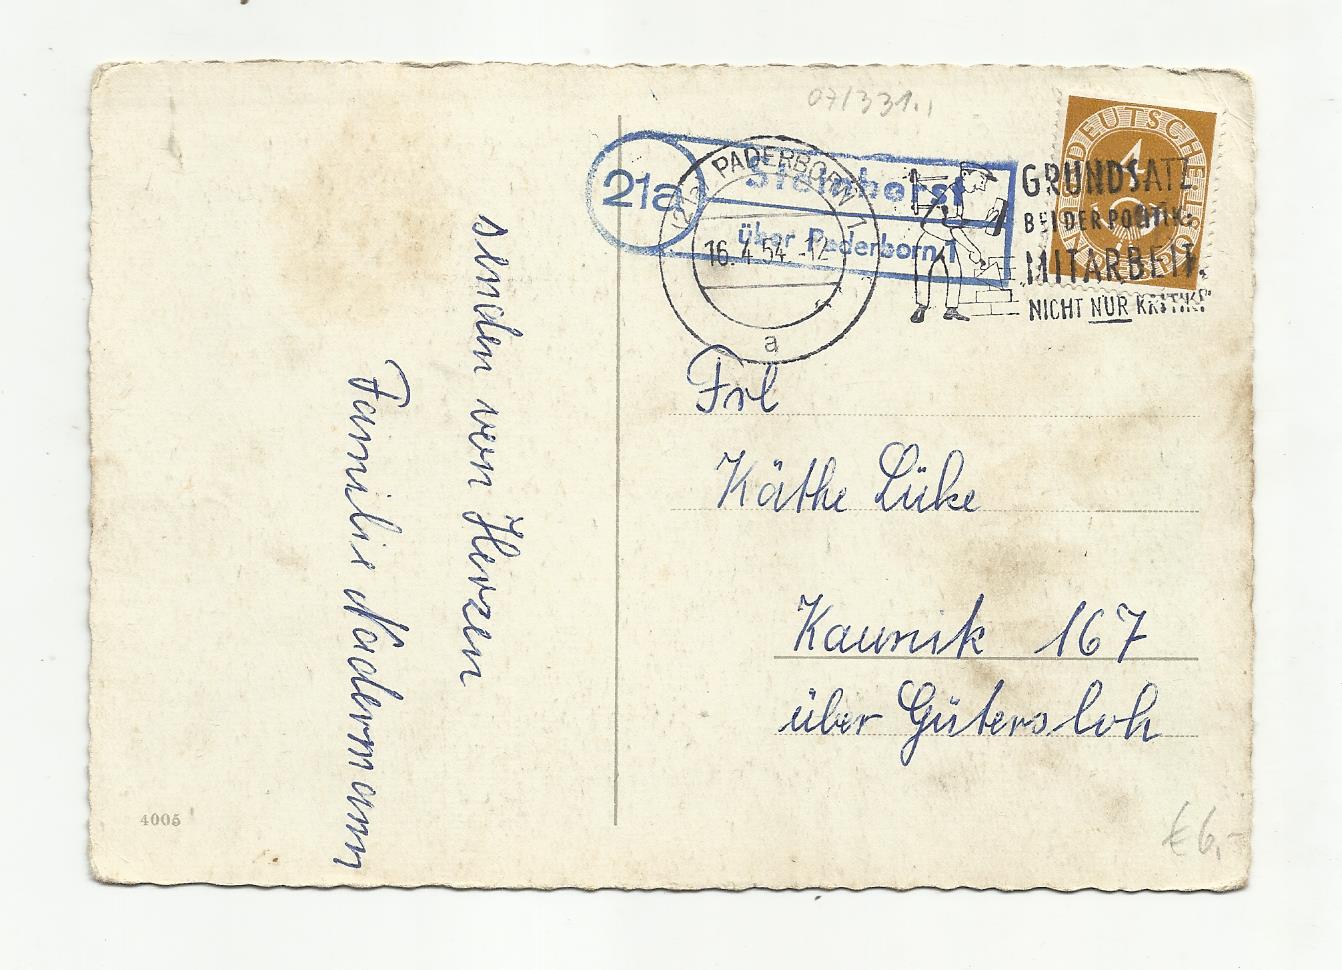 07/331.,
DEUTSCHE BUNDESPOST
4
21a
Steinhorst
über Paderborn 1
(21a) PADERBORN 1
16.4.54.-12
a
GRUNDSATZ
BEI DER POLITIK:
MITARBEIT,
NICHT NUR KRITIK!
senden von Herzen
Familie Nadermann
Frl
Käthe Lüke
Kaunik 167
über Gütersloh
4005
€ 6,-